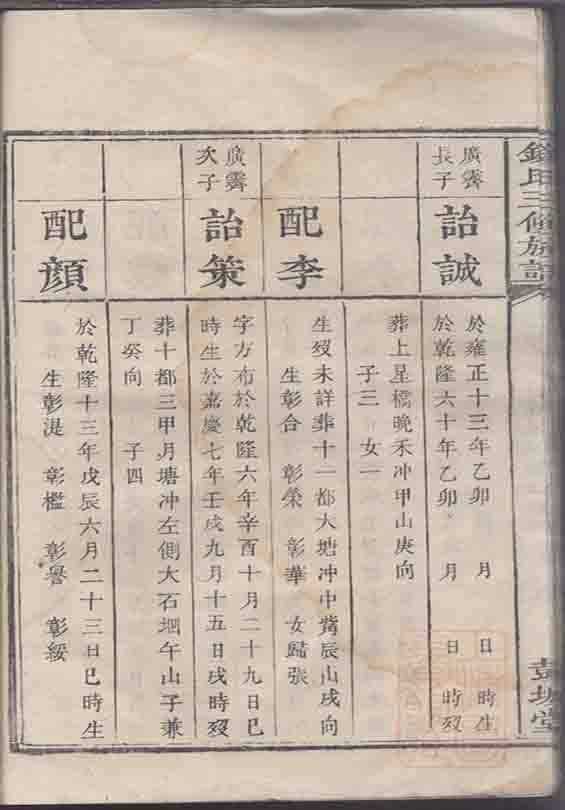 鍾氏三修族譜
彭城堂
廣霽
長子
詒誠
於雍正十三年乙卯 月 日 時生
於乾隆六十年乙卯 月 日 時歿
葬上星橋晚禾冲甲山庚向
子三 女一
配李
生歿未詳葬十一都大塘冲中嘴辰山戌向
生彰合 彰榮 彰華 女歸張
廣霽
次子
詒策
字方布於乾隆六年辛酉十月二十九日巳
時生於嘉慶七年壬戌九月十五日戌時歿
葬十都三甲月塘冲左側大石堌午山子兼
丁癸向 子四
配顏
於乾隆十三年戊辰六月二十三日巳時生
生彰湜 彰檻 彰譽 彰綏